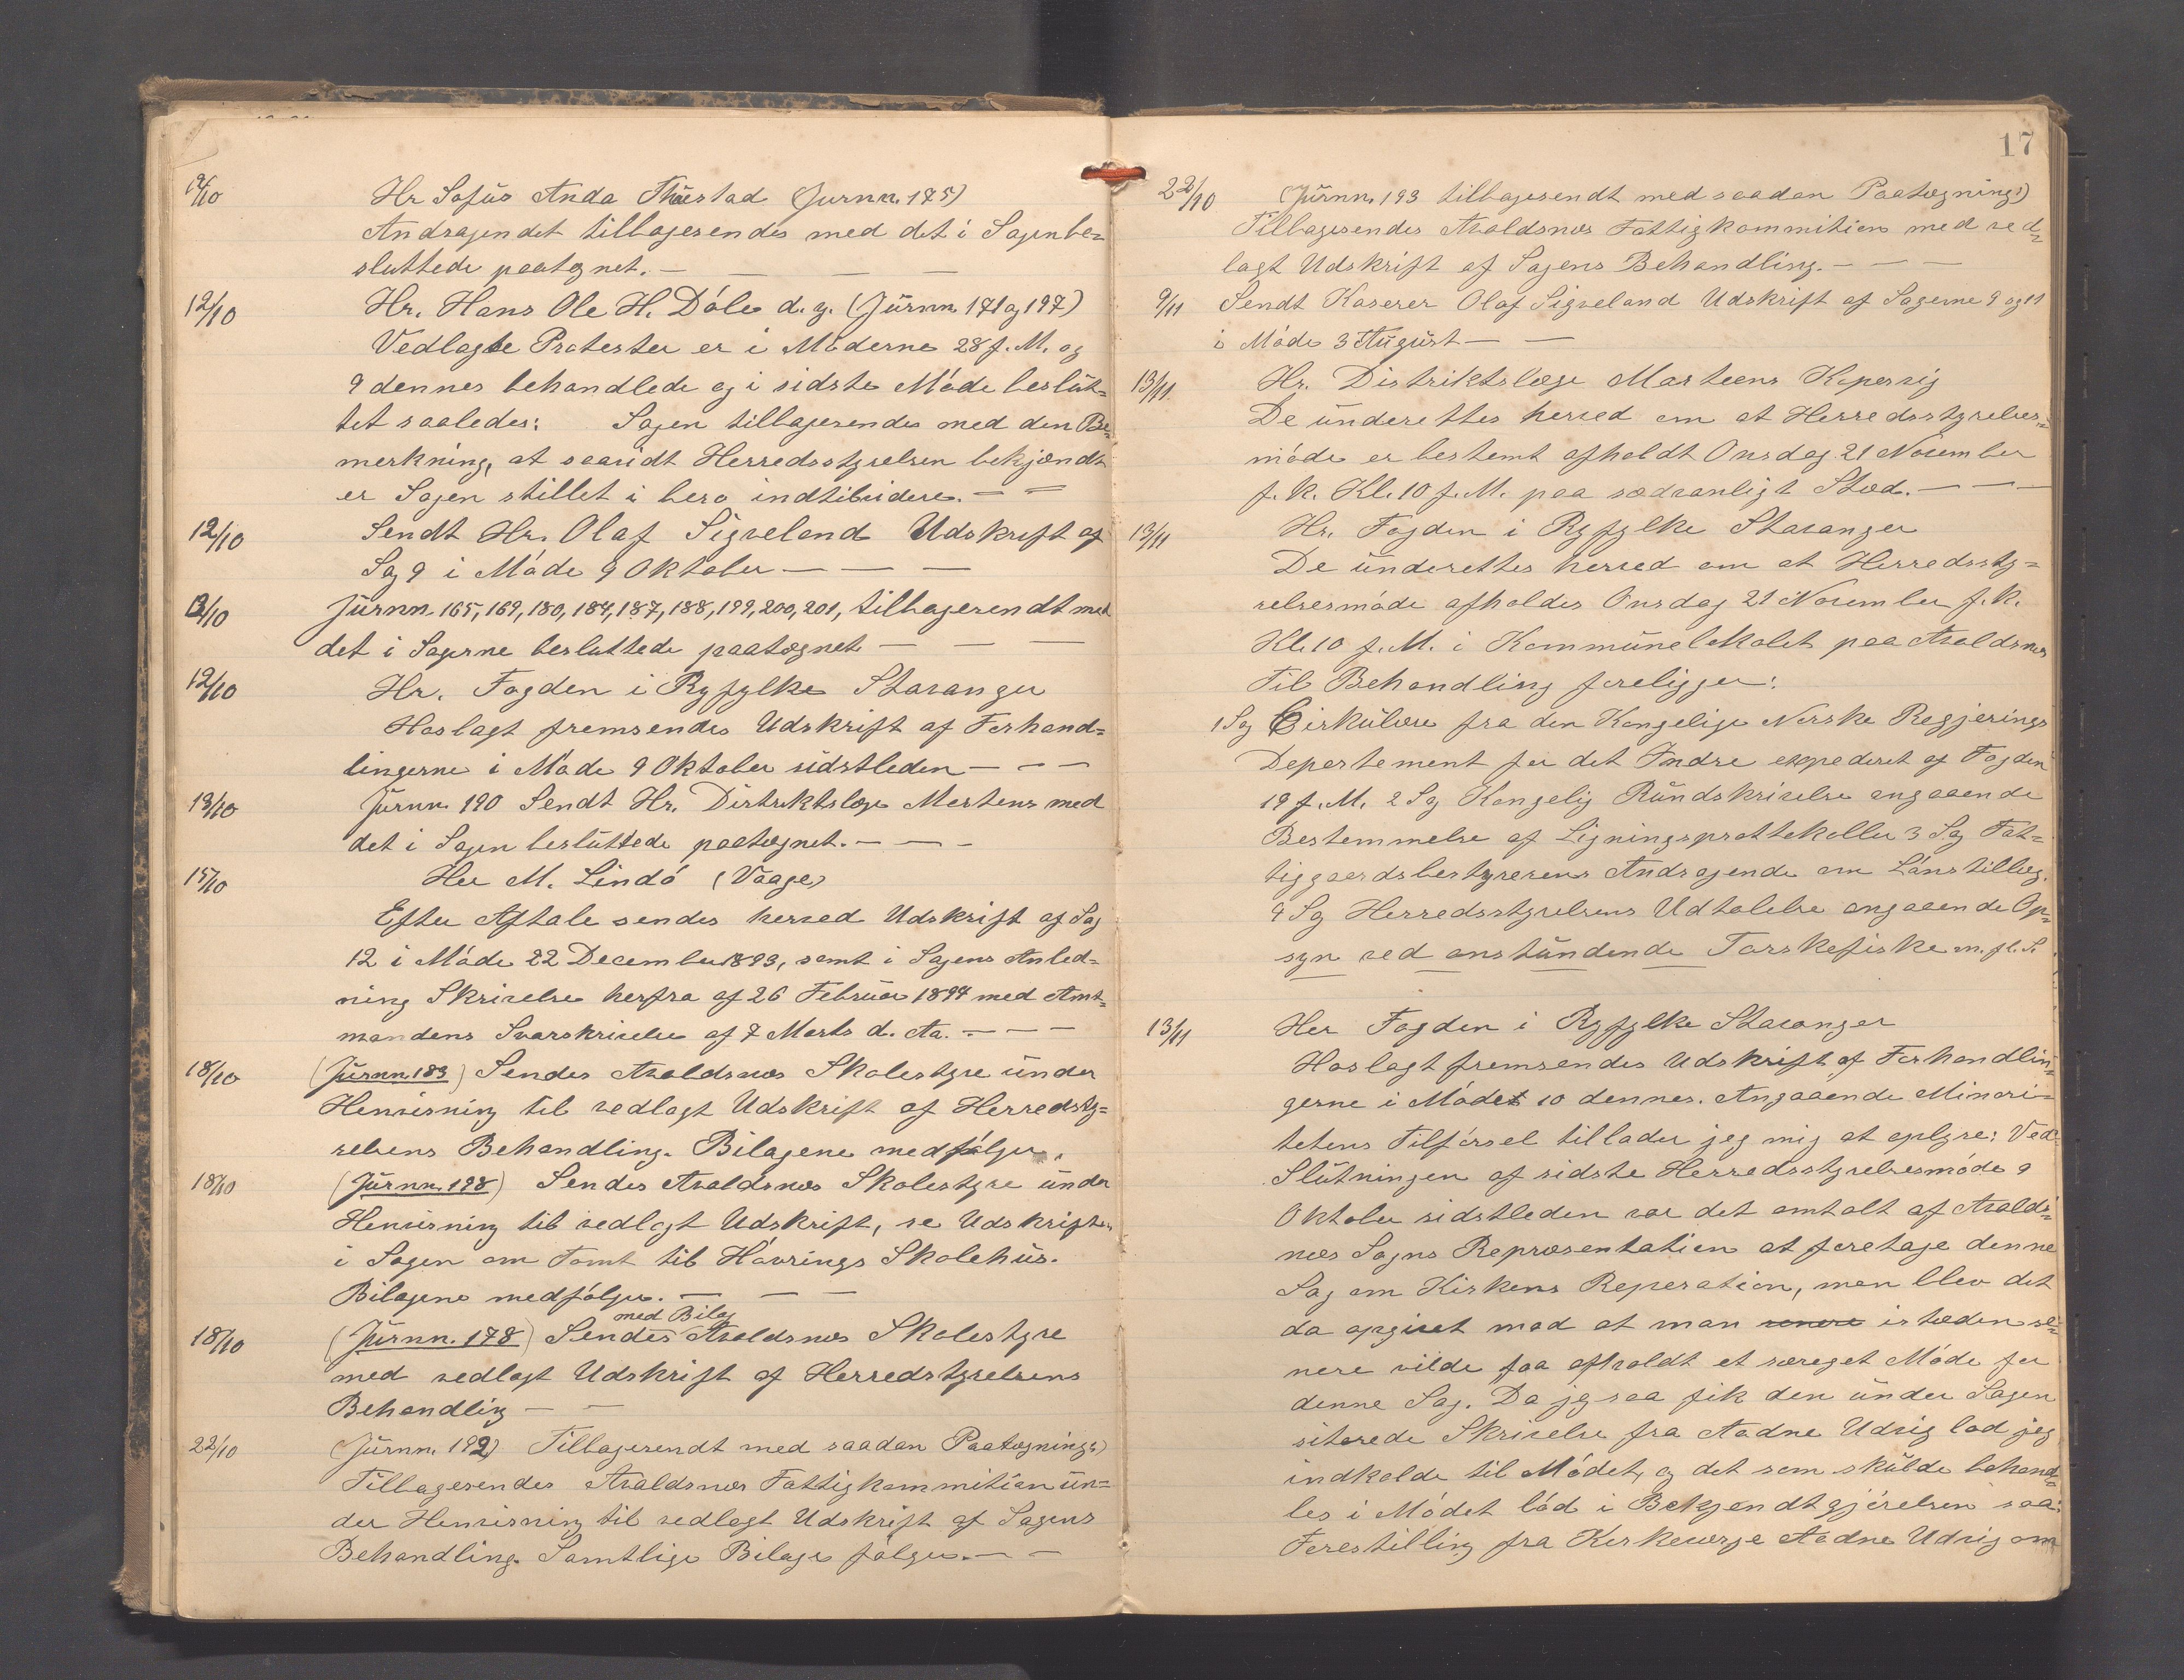 12/10 Hr Sofus Anda Thuestad (Jurnn. 175)
Andragendet tilbagesendes med det i Sagen be=
sluttede paategnet. — — — —
12/10 Hr. Hans Ole H. Dóle d. y. (Jŭrnn 171 og 197)
Vedlagte Protester er i Móderne 28 f. M. og
9 dennes behandlede og i sidste Móde beslŭt=
tet saaledes: Sagen tilbagesendes med den Be=
merkning, at saavidt Herredsstyrelsen bekjendt
er Sagen stillet i bero indtilvidere. — —
12/10 Sendt Hr. Olaf Sigveland Udskrift af
Sag 9 i Móde 9 Oktober — — —
12/10 Jŭrnn. 165, 169, 180, 184, 187, 188, 199, 200, 201, tilbagesendt med
det i Sagerne besluttede paategnet — — —
12/10 Hr. Fogden i Ryfylke Stavanger
Hoslagt fremsendes Udskrift af Forhand=
lingerne i Móde 9 Oktober sidstleden — — —
13/10 Jŭrnn. 190 Sendt Hr. Distriktslæge Mertens med
det i Sagen beslŭttede paategnet. — — —
15/10 Her M. Lindó (Vaage)
Efter Aftale sendes herved Udskrift af Sag
12 i Móde 22 December 1893, samt i Sagens Anled=
ning Skrivelse herfra af 26 Februar 1894 med Amt=
mandens Svarskrivelse af 7 Marts d. Aa. — — —
18/10 (Jŭrnn. 183) Sendes Avaldsnes Skolestyre ŭnder
Henvisning til vedlagt Udskrift af Herredsty=
relsens Behandling. Bilagene medfólger.
18/10 (Jŭrnn. 198) Sendes Avaldsnes Skolestyre ŭnder
Henvisning til vedlagt Udskrift, se Udskriften
i Sagen om Tomt til Hávrings Skolehŭs.
Bilagene medfólger. — — —
med Bilag
18/10 (Jŭrnn. 178) Sendes Avaldsnes Skolestyre
med vedlagt Udskrift af Herredstyrelsens
Behandling — —
22/10 (Jŭrnn. 192) Tilbagesendt med saadan Paategning:)
Tilbagesendes Avaldsnes Fattigkommition ŭn=
der Henvisning til vedlagt Udskrift af Sagens
Behandling. Samtlige Bilage fólger. — —
17
22/10 (Jŭrnn. 193 tilbagesendt med saadan Paategning:)
Tilbagesendes Avaldsnes Fattigkommition med ved=
lagt Udskrift af Sagens Behandling. — — —
9/11 Sendt Kaserer Olaf Sigveland Udskrift af Sagerne 9 og 11
i Móde 3 Aŭgŭst — —
13/11 Hr. Distriktslæge Martens Kopervig
De ŭnderettes herved om at Herredsstyrelses=
móde er bestemt afholdt Onsdag 21 November
f. k. Kl. 10 f. M. paa sædvanligt Sted. — — —
13/11 Hr. Fogden i Ryfylke Stavanger
De ŭnderettes herved om at Herredssty=
relsesmóde afholdes Onsdag 21 November f. k.
Kl. 10 f. M. i Kommŭnelokalet paa Avaldsnes
Til Behandling foreligger:
1 Sag Cirkŭlære fra den Kongelige Norske Regjerings
Departement for det Indre exppederet af Fogden
19 f. M. 2 Sag Kongelig Rŭndskrivelse angaaende
Bestemmelse af Ligningsprottokoller 3 Sag Fat=
tiggaardsbestyrerens Andragende om Lónstillæg.
4 Sag Herredsstyrelsens Udtalelse angaaende Op=
syn ved anstŭndende Torskefiske m. fl. S.
13/11 Her Fogden i Ryfylke Stavanger
Hoslagt fremsendes Udskrift af Forhandlin=
gerne i Módet 10 dennes. Angaaende Minori=
tetens Tilfórsel tillader jeg mig at oplyse: Ved
Slŭtningen af sidste Herredsstyrelsesmóde 9
Oktober sidstleden var det omtalt af Avalds=
nes Sogns Repræsentation at foretage denne
Sag om Kirkens Reperation, men blev det
da opgivet mod at man senere isteden se=
nere vilde faa afholdt et særeget Móde for
denne Sag. Da jeg saa fik den ŭnder Sagen
siterede Skrivelse fra Aadne Udvig lod jeg
indkalde til Módet, og det som skŭlde behand=
les i Módet lód i Bekjendtgjórelsen saa:
Forestilling fra Kirkeværge Aadne Udvig om